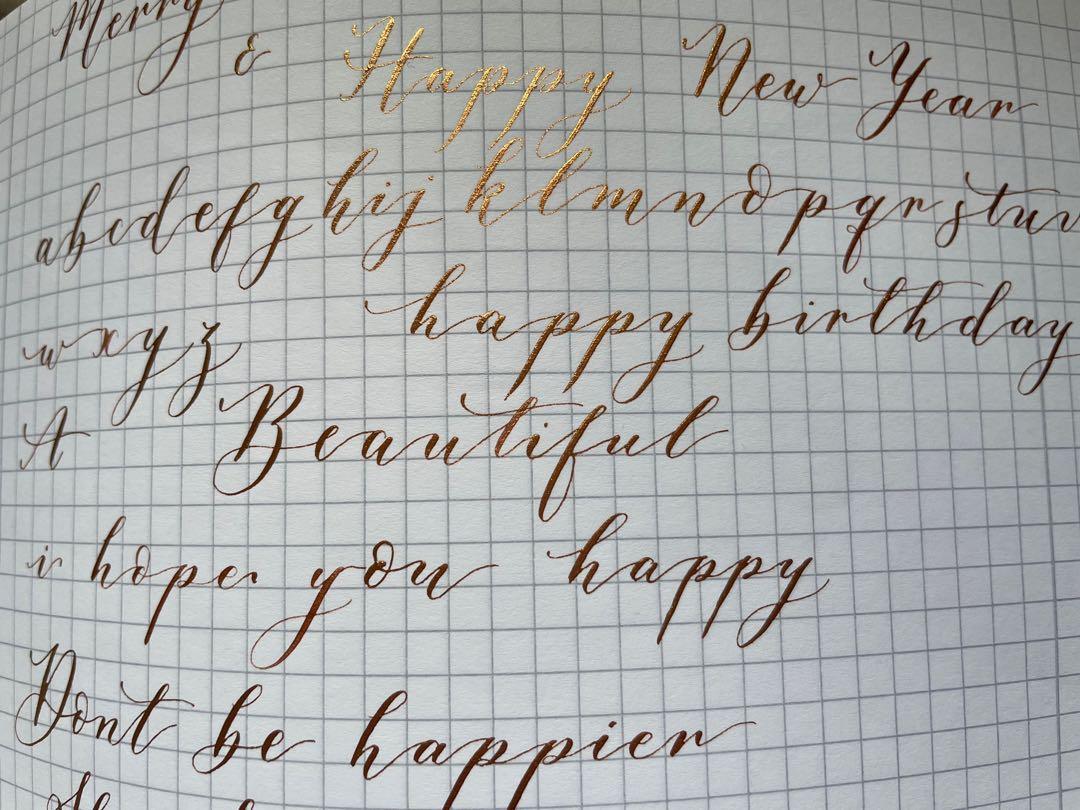 Merry
& Happy New Year
abcdefghij klmnopqrstuv
wxyz happy birthday
A Beautiful
i hope you happy
Dont be happier